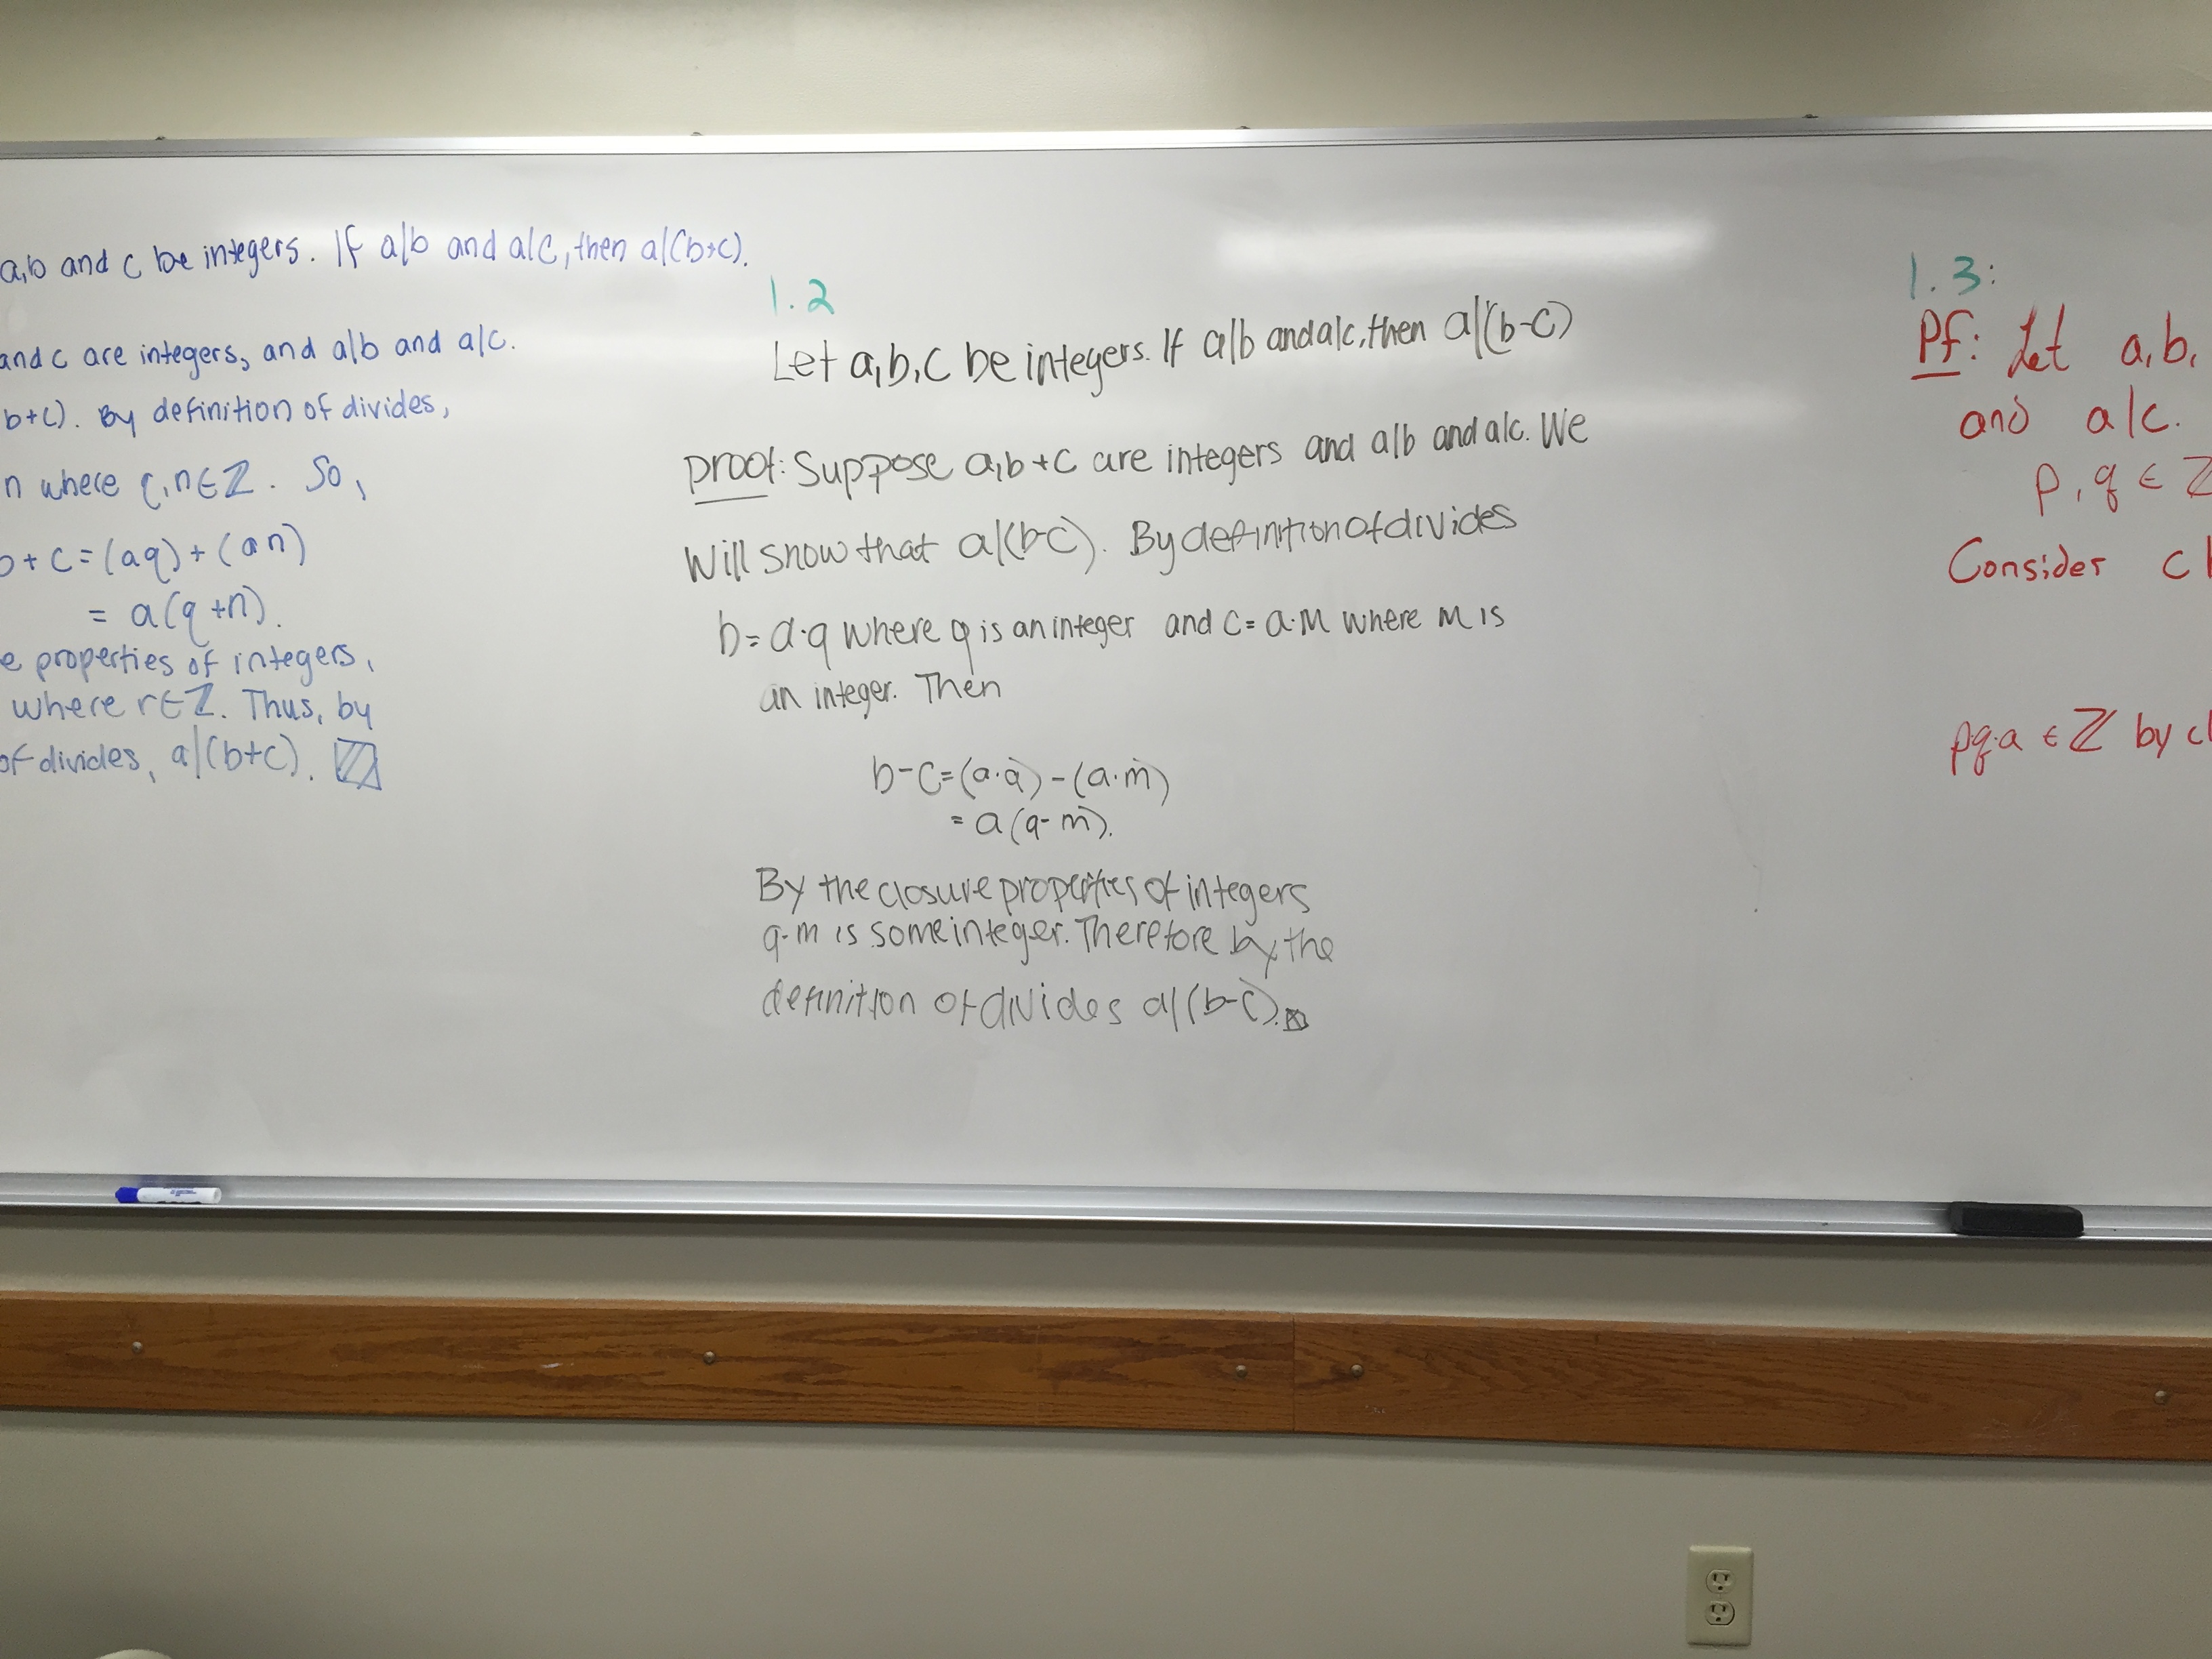 a,b and c be integers. If a|b and a|c, then a|(b+c).
and c are integers, and a|b and a|c.
b+c). By definition of divides,
n where q,n∈ℤ. So,
b+c=(aq)+(an)
= a(q+n).
e properties of integers,
where r∈ℤ. Thus, by
of divides, a|(b+c).
1.2
Let a,b,c be integers. If a|b and a|c, then a|(b-c)
proof: Suppose a,b+c are integers and a|b and a|c. We
Will show that a|(b-c). By definition of divides
b=a·q where q is an integer and c=a·m where m is
an integer. Then
b-c=(a·q)-(a·m)
= a(q-m).
By the closure properties of integers
q-m is some integer. Therefore by the
definition of divides a|(b-c).
1.3:
Pf: Let a,b,
and a|c.
p,q ∈ ℤ
Consider c
pq·a ∈ ℤ by cl